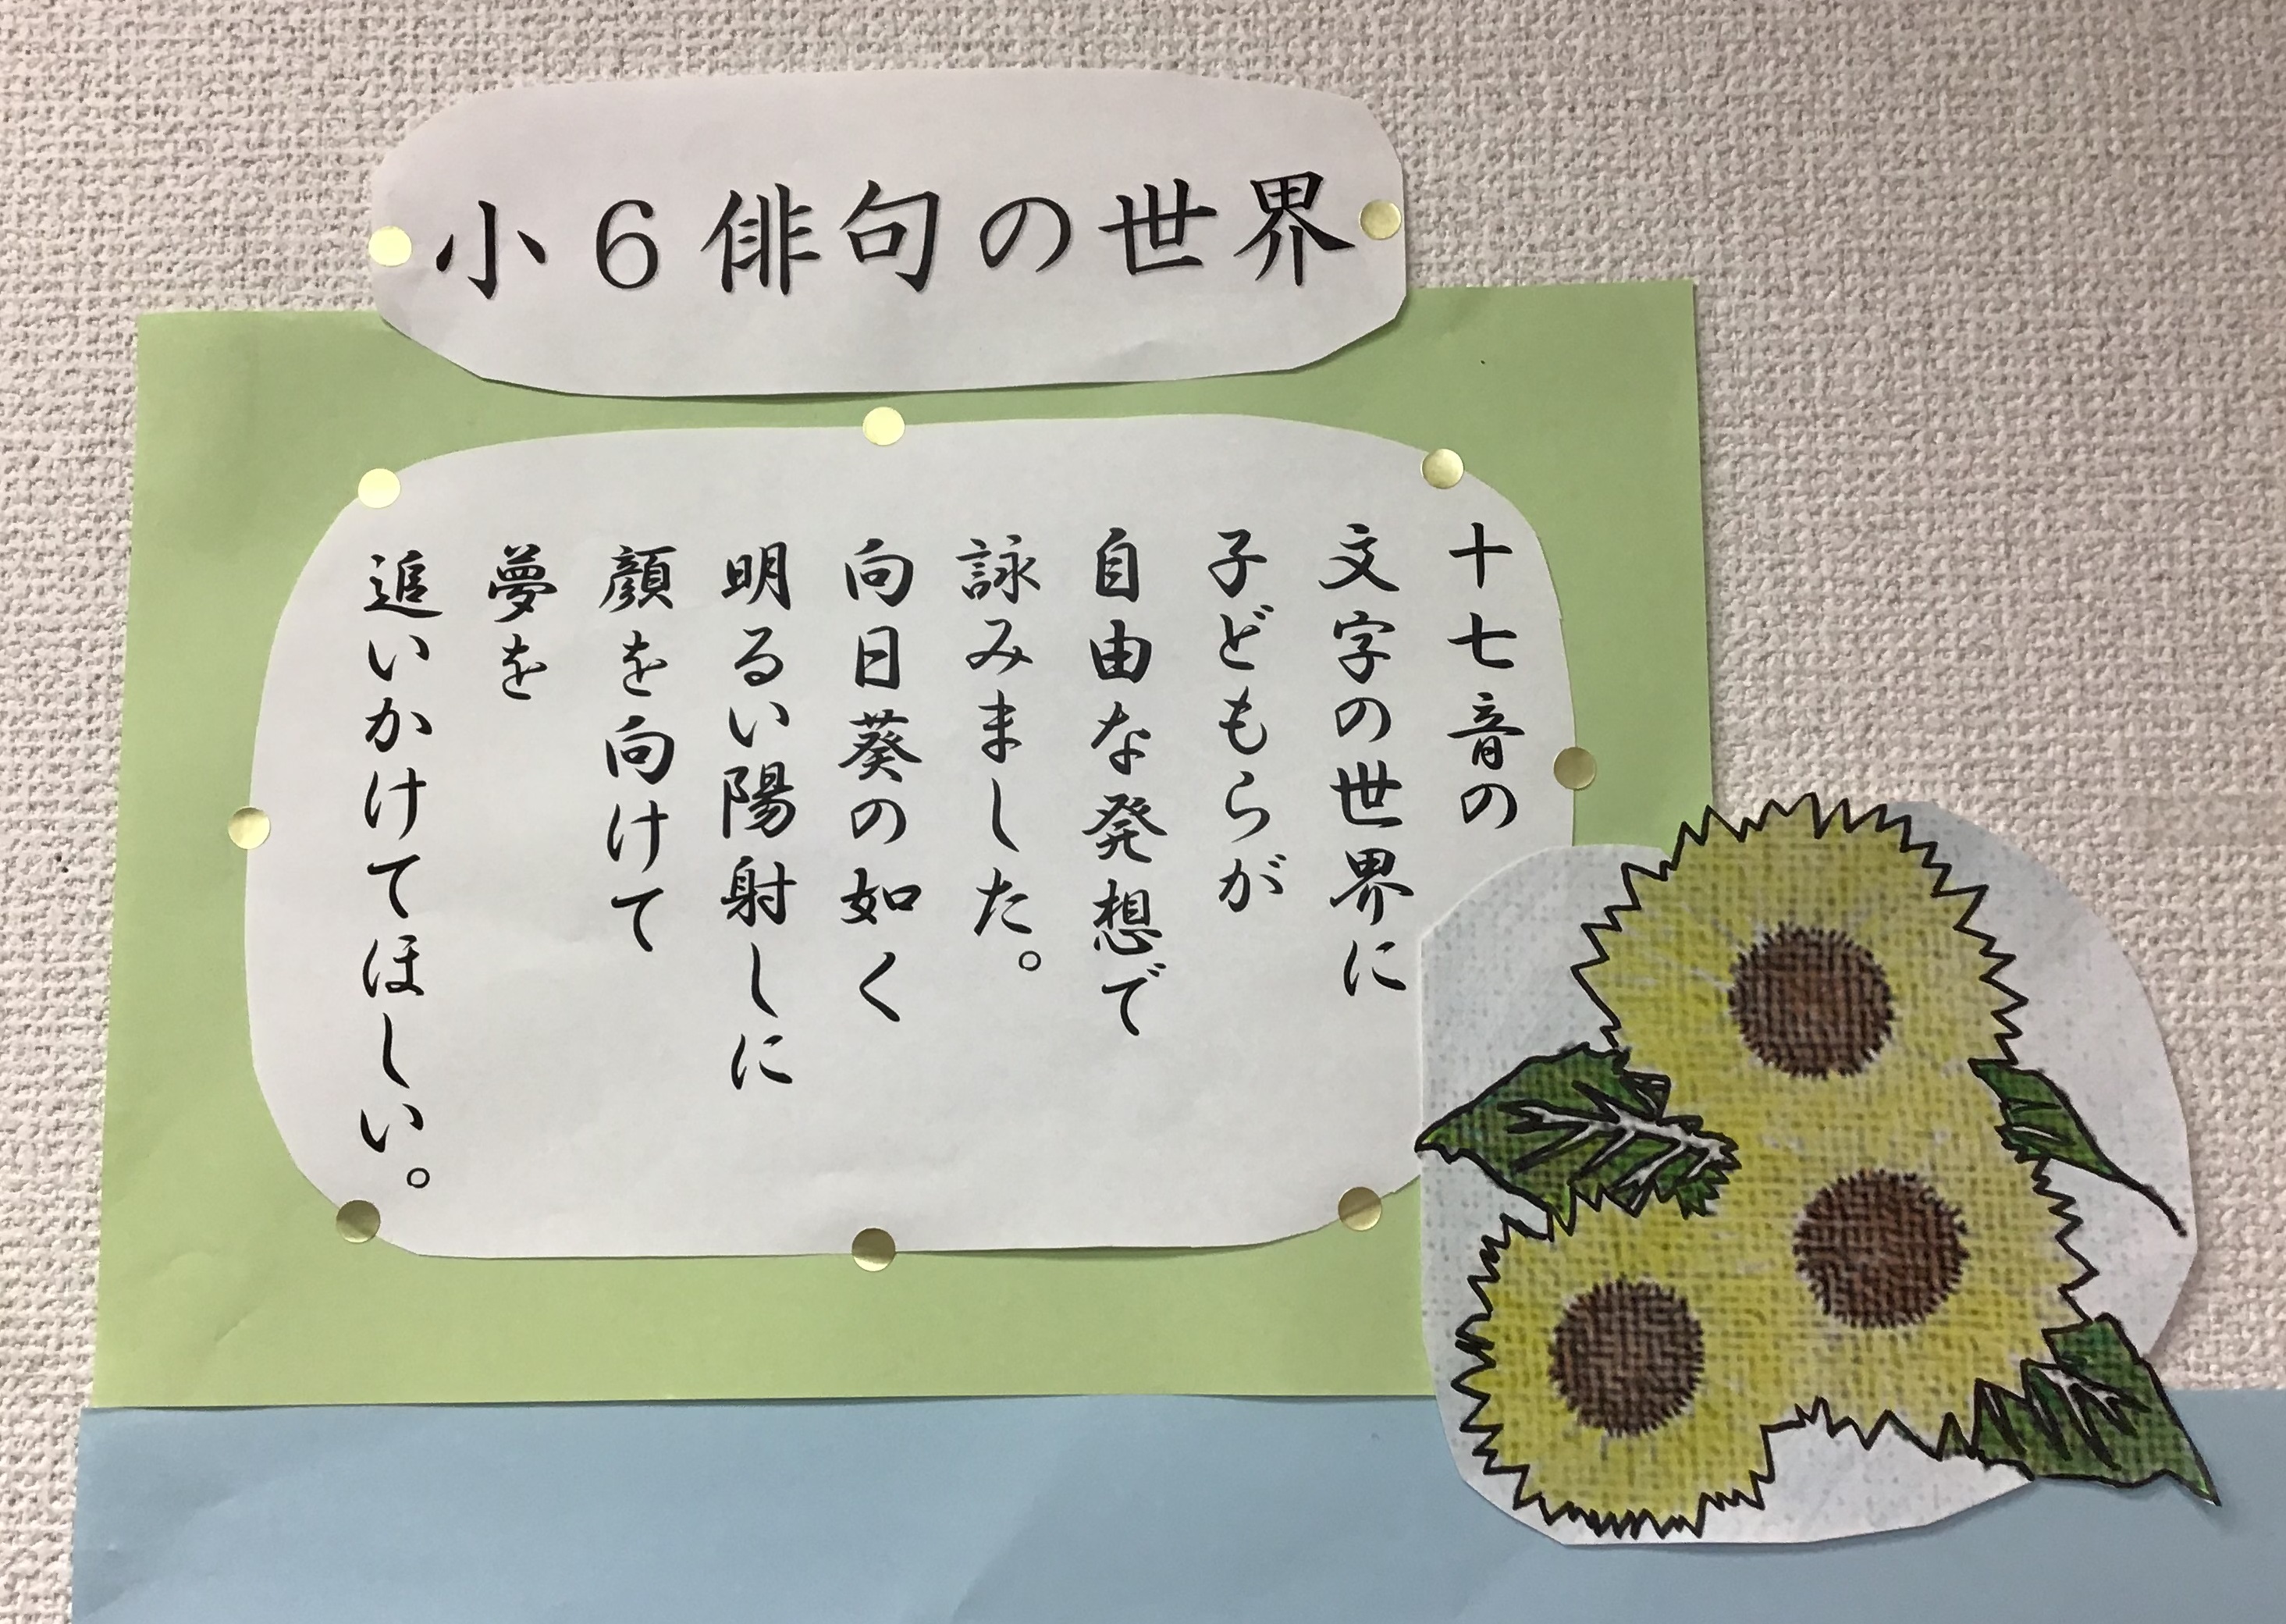 小6俳句の世界
十七音の
文字の世界に
子どもらが
自由な発想で
詠みました。
向日葵の如く
明るい陽射しに
顔を向けて
夢を
追いかけてほしい。